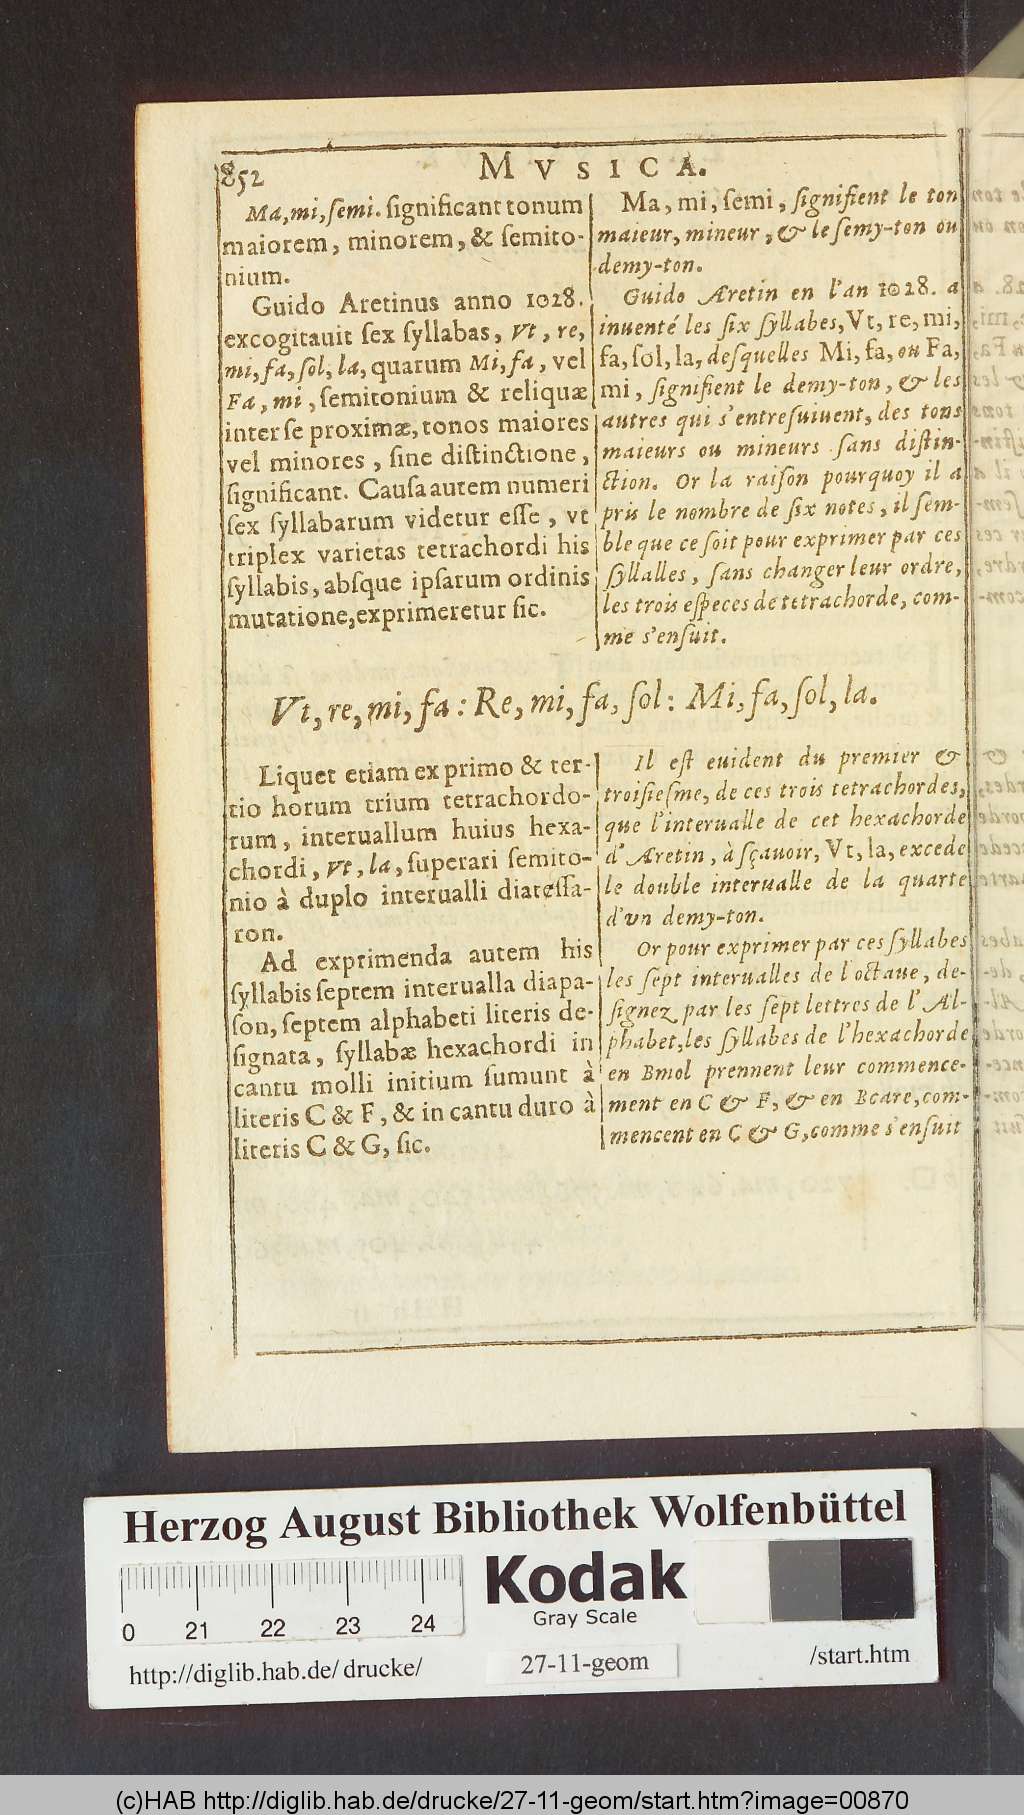 852
MVSICA.
Ma, mi, ſemi. ſignificant tonum
maiorem, minorem, & ſemito-
nium.
Guido Aretinus anno 1028.
excogitauit ſex ſyllabas, Vt, re,
mi, fa, ſol, la, quarum Mi, fa, vel
Fa, mi, ſemitonium & reliquæ
inter ſe proximæ, tonos maiores
vel minores, ſine diſtinctione,
ſignificant. Cauſa autem numeri
ſex ſyllabarum videtur eſſe, vt
triplex varietas tetrachordi his
ſyllabis, abſque ipſarum ordinis
mutatione, exprimeretur ſic.
Ma, mi, ſemi, ſignifient le ton
maieur, mineur, & le ſemy-ton ou
demy-ton.
Guido Aretin en l'an 1028. a
inuenté les ſix ſyllabes, Vt, re, mi,
fa, ſol, la, deſquelles Mi, fa, ou Fa,
mi, ſignifient le demy-ton, & les
autres qui s'entreſuiuent, des tons
maieurs ou mineurs ſans diſtin-
ction. Or la raiſon pourquoy il a
pris le nombre de ſix notes, il ſem-
ble que ce ſoit pour exprimer par ces
ſyllalles, ſans changer leur ordre,
les trois eſpeces de tetrachorde, com-
me s'enſuit.
Vt, re, mi, fa : Re, mi, fa, ſol : Mi, fa, ſol, la.
Liquet etiam ex primo & ter-
tio horum trium tetrachordo-
rum, interuallum huius hexa-
chordi, Vt, la, ſuperari ſemito-
nio à duplo interualli diateſſa-
ron.
Ad exprimenda autem his
ſyllabis ſeptem interualla diapa-
ſon, ſeptem alphabeti literis de-
ſignata, ſyllabæ hexachordi in
cantu molli initium ſumunt à
literis C & F, & in cantu duro à
literis C & G, ſic.
Il eſt euident du premier &
troiſieſme, de ces trois tetrachordes,
que l'interualle de cet hexachorde
d'Aretin, à ſçauoir, Vt, la, excede
le double interualle de la quarte
d'vn demy-ton.
Or pour exprimer par ces ſyllabes
les ſept interualles de l'octaue, de-
ſignez par les ſept lettres de l'Al-
phabet, les ſyllabes de l'hexachorde
en Bmol prennent leur commence-
ment en C & F, & en Bcare, com-
mencent en C & G, comme s'enſuit
Herzog August Bibliothek Wolfenbüttel
Kodak
Gray Scale
0 21 22 23 24
http://diglib.hab.de/drucke/
27-11-geom
/start.htm
(c)HAB http://diglib.hab.de/drucke/27-11-geom/start.htm?image=00870